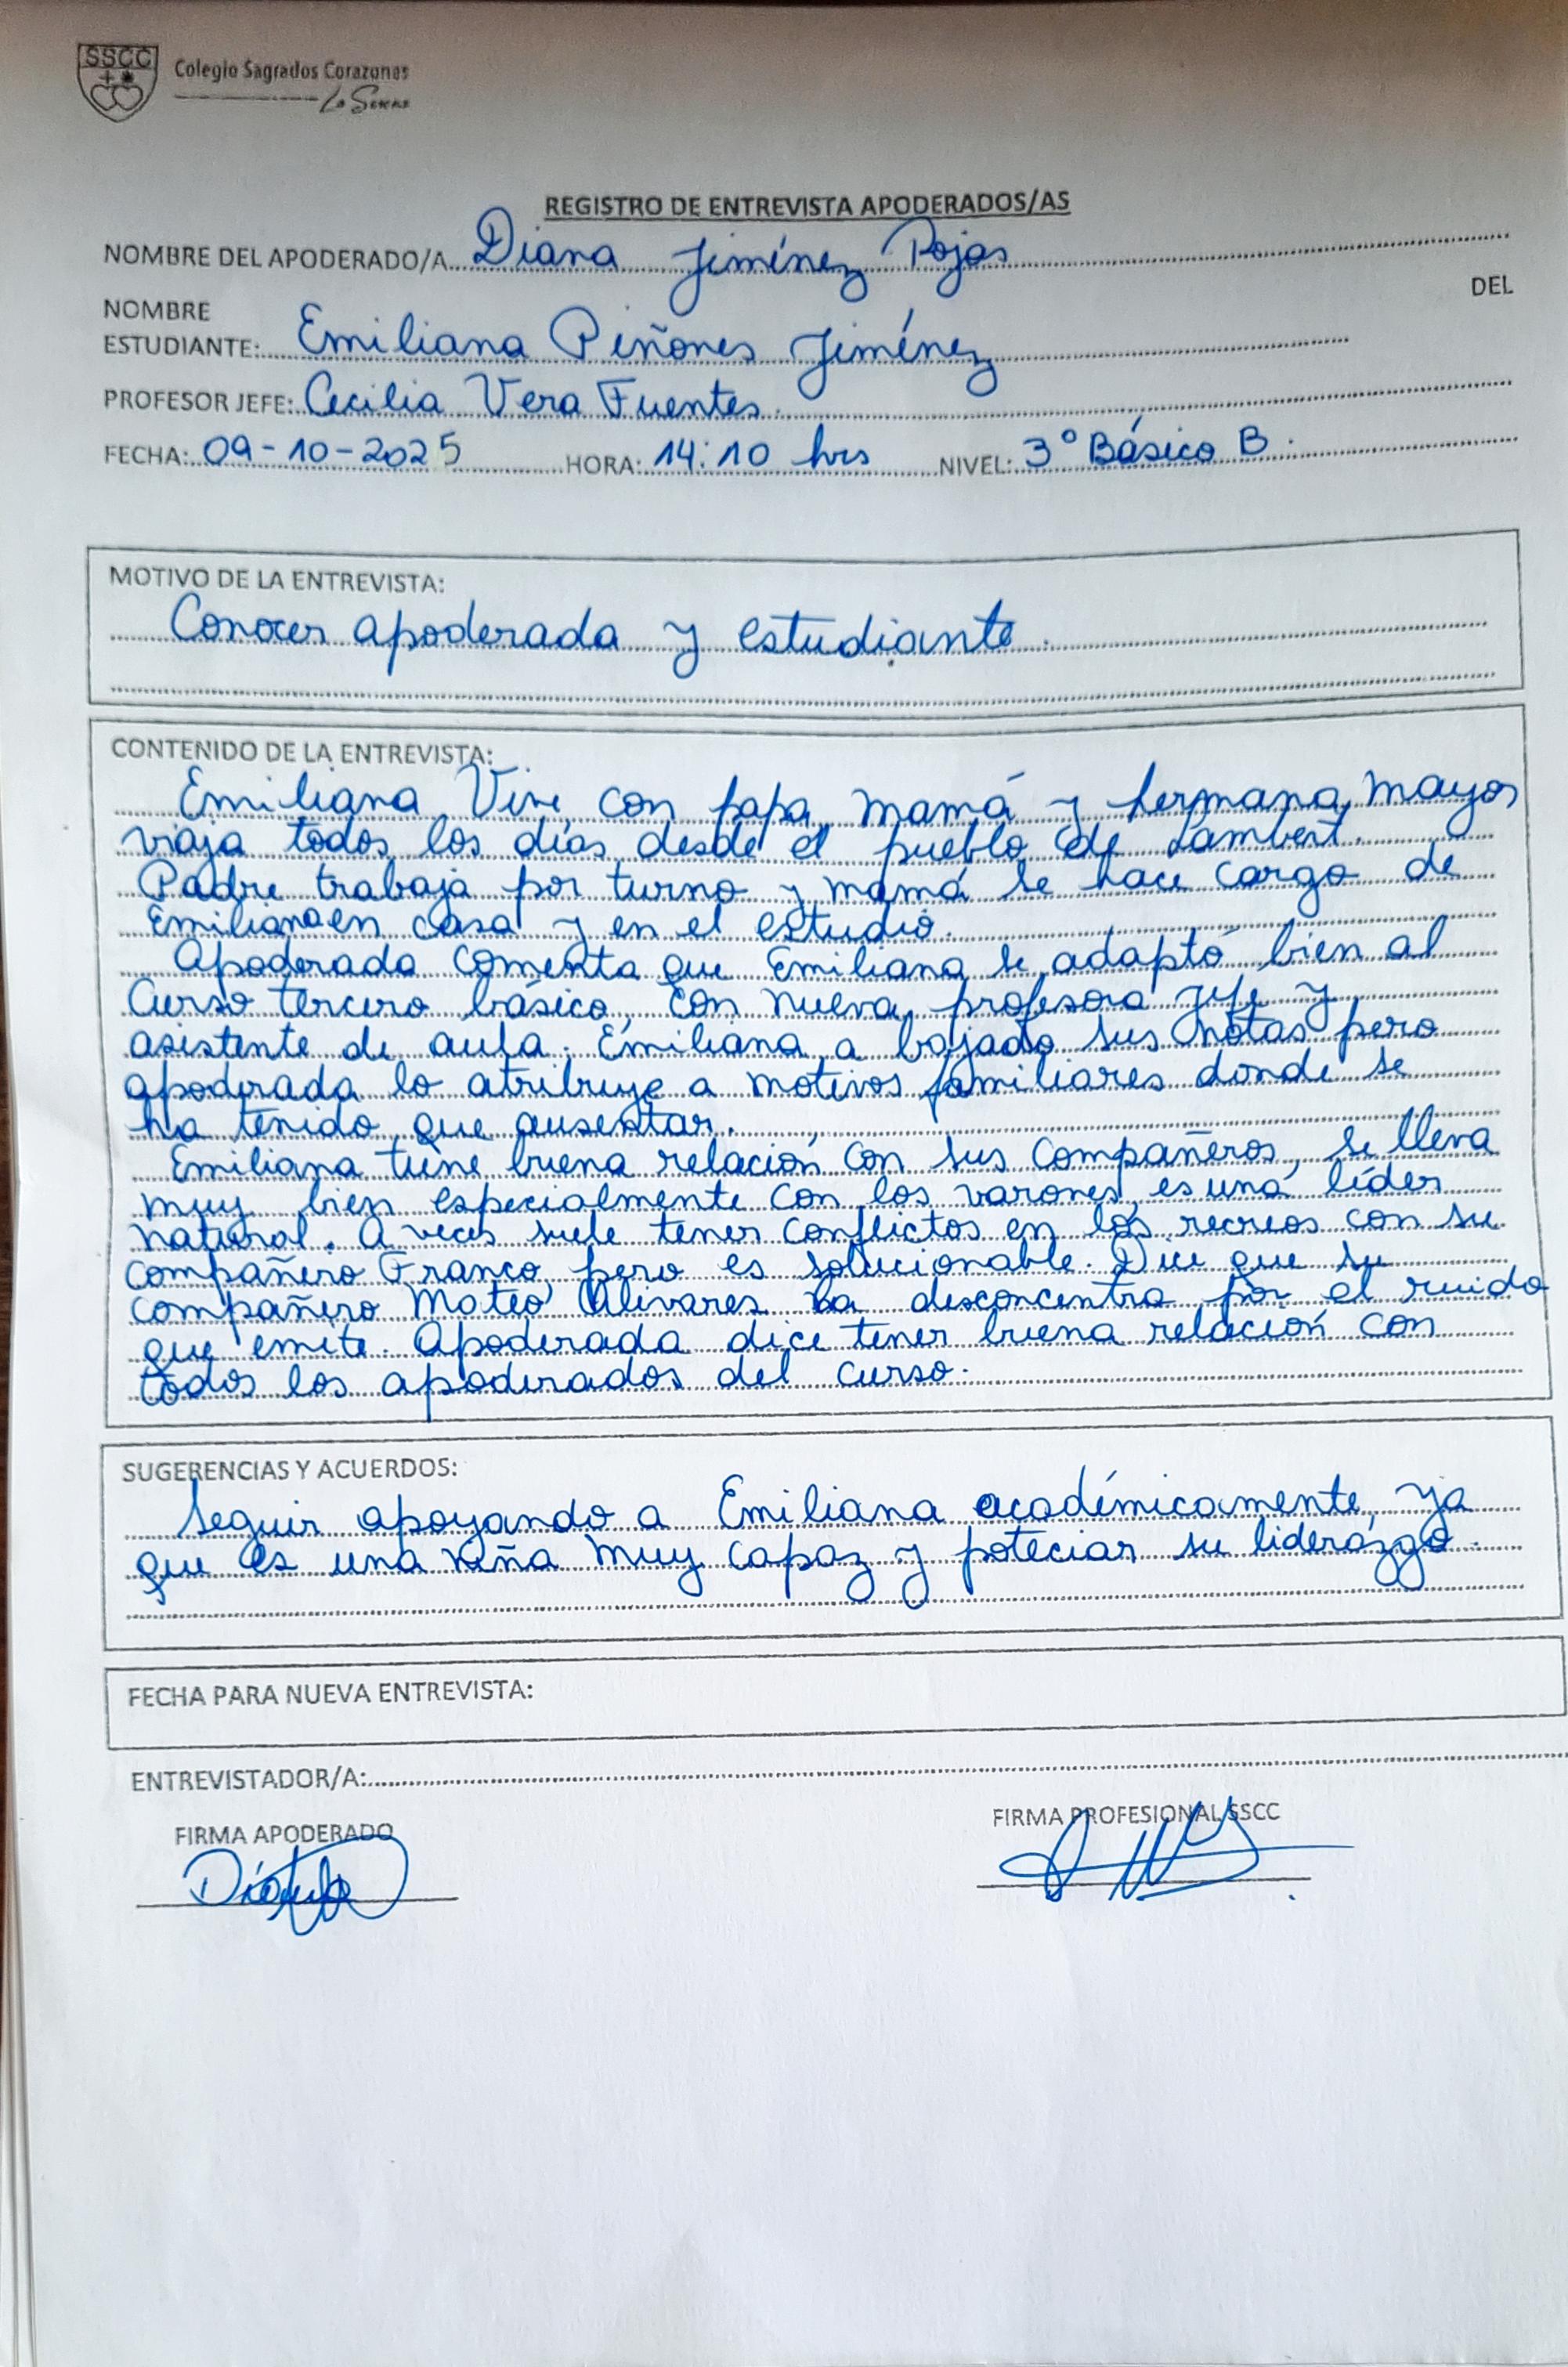 SSCC
Colegio Sagrados Corazones
La Serena
REGISTRO DE ENTREVISTA APODERADOS/AS
NOMBRE DEL APODERADO/A Diana Jiménez Rojas
NOMBRE DEL
ESTUDIANTE: Emiliana Piñones Jiménez
PROFESOR JEFE: Cecilia Vera Fuentes.
FECHA: 09-10-2025 HORA: 14:10 hrs NIVEL: 3° Básico B.
MOTIVO DE LA ENTREVISTA:
Conocer apoderada y estudiante.
CONTENIDO DE LA ENTREVISTA:
Emiliana Vive con papa, mamá y hermana mayor
viaja todos los días desde el pueblo de Lambert.
Padre trabaja por turno y mamá se hace cargo de
Emiliana en casa y en el estudio.
Apoderada comenta que Emiliana se adaptó bien al
Curso tercero básico, con nueva profesora jefe y
asistente de aula. Emiliana a bajado sus notas pero
apoderada lo atribuye a motivos familiares donde se
ha tenido que ausentar.
Emiliana tiene buena relación con sus compañeros, se lleva
muy bien especialmente con los varones, es una líder
natural. A veces suele tener conflictos en los recreos con su
compañero Franco, pero es solucionable. Dice que su
compañero Mateo Olivares la desconcentra por el ruido
que emite. Apoderada dice tener buena relación con
todos los apoderados del curso.
SUGERENCIAS Y ACUERDOS:
Seguir apoyando a Emiliana académicamente, ya
que es una niña muy capaz y poteciar su liderazgo.
FECHA PARA NUEVA ENTREVISTA:
ENTREVISTADOR/A:
FIRMA APODERADO FIRMA PROFESIONAL SSCC